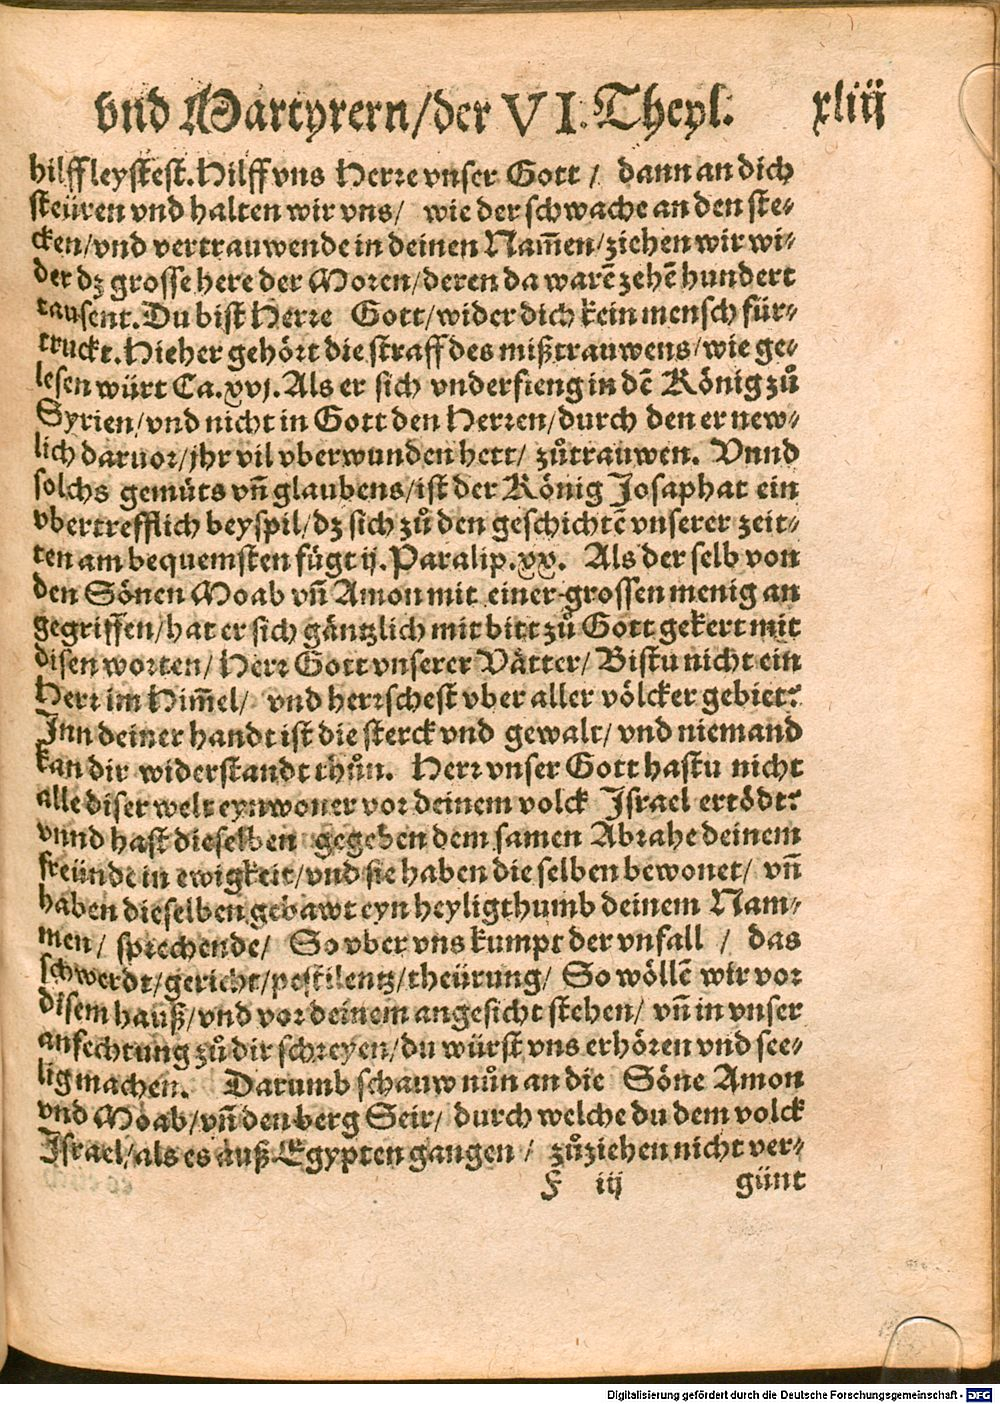 vnd Martyrern/der VI. Theyl. xliij
hilff leystest. Hilff vns Herre vnser Gott / dann an dich
steüren vnd halten wir vns/ wie der schwache an den ste-
cken/vnd vertrauwende in deinen Nam̄en/ziehen wir wi-
der dz grosse here der Moren/deren da warē zehē hundert
tausent. Du bist Herre Gott/wider dich kein mensch für-
truckt. Hieher gehört die straff des mißtrauwens/wie ge-
lesen würt Ca.xvj. Als er sich vnderfieng in dē König zů
Syrien/vnd nicht in Gott den Herren/durch den er new-
lich daruor/jhr vil vberwunden hett/ zůtrauwen. Vnnd
solchs gemüts vn̄ glaubens/ist der König Josaphat ein
vbertrefflich beyspil/dz sich zů den geschichtē vnserer zeit-
ten am bequemsten fügt ij. Paralip.xx. Als der selb von
den Sönen Moab vn̄ Amon mit einer grossen menig an
gegriffen/hat er sich gäntzlich mit bitt zů Gott gekert mit
disen worten/ Herr Gott vnserer Vätter/ Bistu nicht ein
Herr im Him̄el/ vnd herrschest vber aller völcker gebiet?
Inn deiner handt ist die sterck vnd gewalt/ vnd niemand
kan dir widerstandt thůn. Herr vnser Gott hastu nicht
alle diser welt eynwoner vor deinem volck Israel ertödt?
vnnd hast dieselben gegeben dem samen Abrahe deinem
freünde in ewigkeit/vnd sie haben die selben bewonet/ vn̄
haben dieselben gebawt eyn heyligthumb deinem Nam-
men/ sprechende/ So vber vns kumpt der vnfall / das
schwerdt/gericht/pestilentz/theürung/ So wöllē wir vor
disem hauß/vnd vor deinem angesicht stehen/ vn̄ in vnser
anfechtung zů dir schreyen/du würst vns erhören vnd see-
lig machen. Darumb schauw nůn an die Söne Amon
vnd Moab/vn̄ den berg Seir/ durch welche du dem volck
Israel/als es auß Egypten gangen / zůziehen nicht ver-
F iij günt
Digitalisierung gefördert durch die Deutsche Forschungsgemeinschaft - DFG